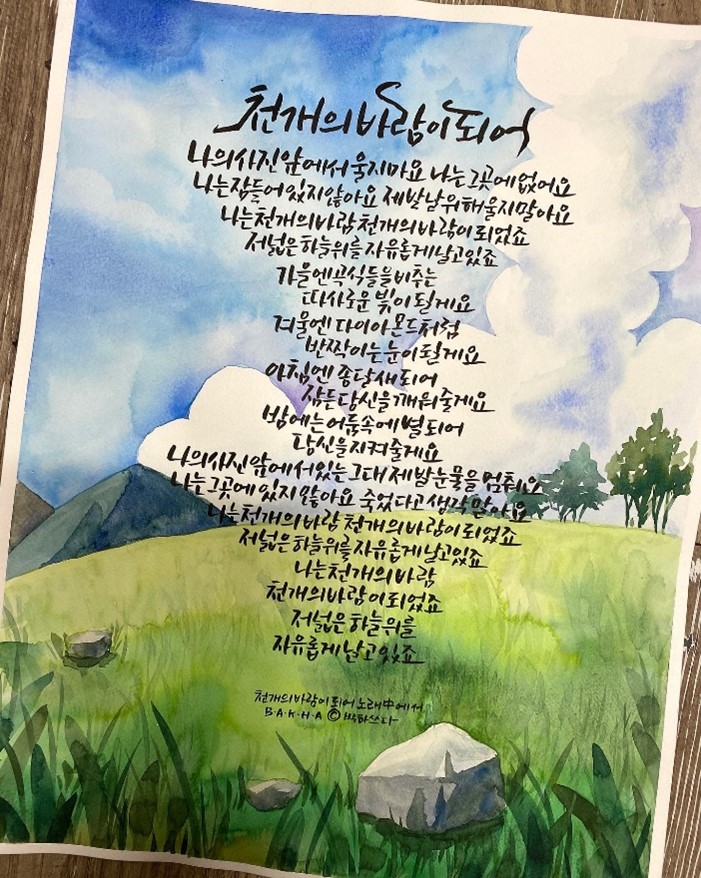 천개의 바람이 되어
나의 사진 앞에서 울지마요 나는 그곳에 없어요
나는 잠들어 있지 않아요 제발 날 위해 울지말아요
나는 천개의 바람 천개의 바람이 되었죠
저 넓은 하늘위를 자유롭게 날고있죠
가을엔 곡식들을 비추는
따사로운 빛이 될게요
겨울엔 다이아몬드처럼
반짝이는 눈이 될게요
아침엔 종달새 되어
잠든 당신을 깨워줄게요
밤에는 어둠속에 별되어
당신을 지켜줄게요
나의 사진 앞에 서있는 그대 제발 눈물을 멈춰요
나는 그곳에 있지 않아요 죽었다고 생각말아요
나는 천개의 바람 천개의 바람이 되었죠
저 넓은 하늘위를 자유롭게 날고있죠
나는 천개의 바람
천개의 바람이 되었죠
저 넓은 하늘위를
자유롭게 날고있죠
천개의 바람이 되어 노래中에서
B·A·K·H·A © 박하쓰다